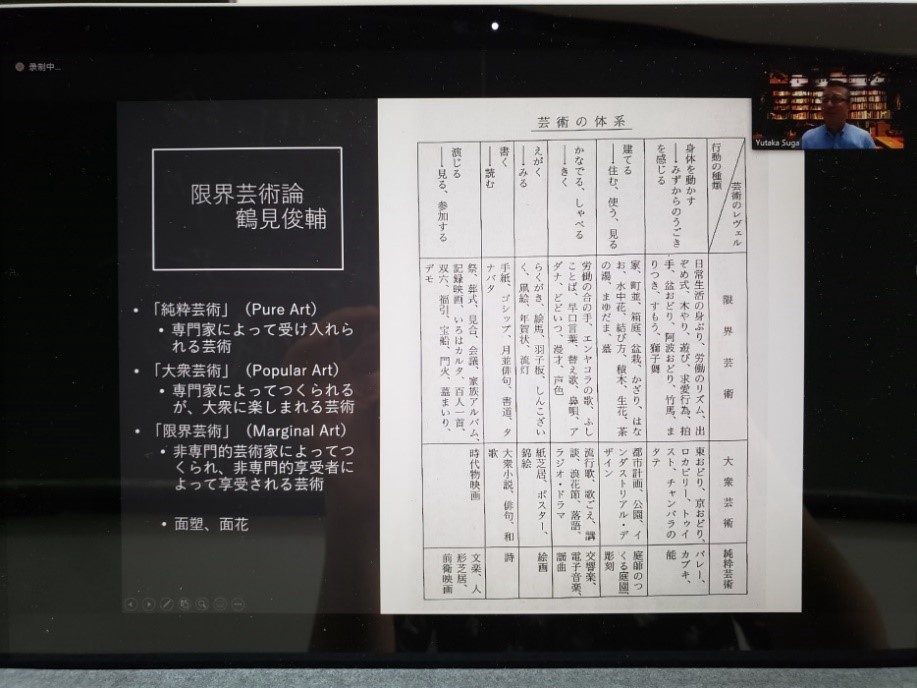 录制中...
限界芸術論
鶴見俊輔
• 「純粋芸術」（Pure Art）
• 専門家によって受け入れら
れる芸術
• 「大衆芸術」（Popular Art）
• 専門家によってつくられる
が、大衆に楽しまれる芸術
• 「限界芸術」（Marginal Art）
• 非専門的芸術家によってつ
くられ、非専門的享受者に
よって享受される芸術
• 面塑、面花
Yutaka Suga
芸術の体系
芸術のレヴェル
行動の種類
限界芸術
大衆芸術
純粋芸術
身体を動かす
──みずからのうごき
を感じる
日常生活の身ぶり、労働のリズム、出
ぞめ式、木やり、遊び、求愛行為、拍
手、盆おどり、阿波おどり、竹馬、ま
りつき、すもう、獅子舞
東おどり、京おどり、
ロカビリー、トゥイ
スト、チャンバラの
タテ
バレー、
カブキ、
能
建てる
──住む、使う、見る
家、町並、箱庭、盆栽、かざり、はな
お、水中花、結び方、積木、生花、茶
の湯、まゆだま、墓
都市計画、公園、イ
ンダストリアル・デ
ザイン
庭師のつ
くる庭園、
彫刻
かなでる、しゃべる
──きく
労働の合の手、エンヤコラの歌、ふし
ことば、早口言葉、替え歌、鼻唄、ア
ダナ、どどいつ、漫才、声色
流行歌、歌ごえ、講
談、浪花節、落語、
ラジオ・ドラマ
交響楽、
電子音楽、
謡曲
えがく
──みる
らくがき、絵馬、羽子板、しんこざい
く、凧絵、年賀状、流灯
紙芝居、ポスター、
錦絵
絵画
書く
──読む
手紙、ゴシップ、月並俳句、書道、タ
ナバタ
大衆小説、俳句、和
歌
詩
演じる
──見る、参加する
祭、葬式、見合、会議、家族アルバム、
記録映画、いろはカルタ、百人一首、
双六、福引、宝船、門火、墓まいり、
デモ
時代物映画
文楽、人
形芝居、
前衛映画